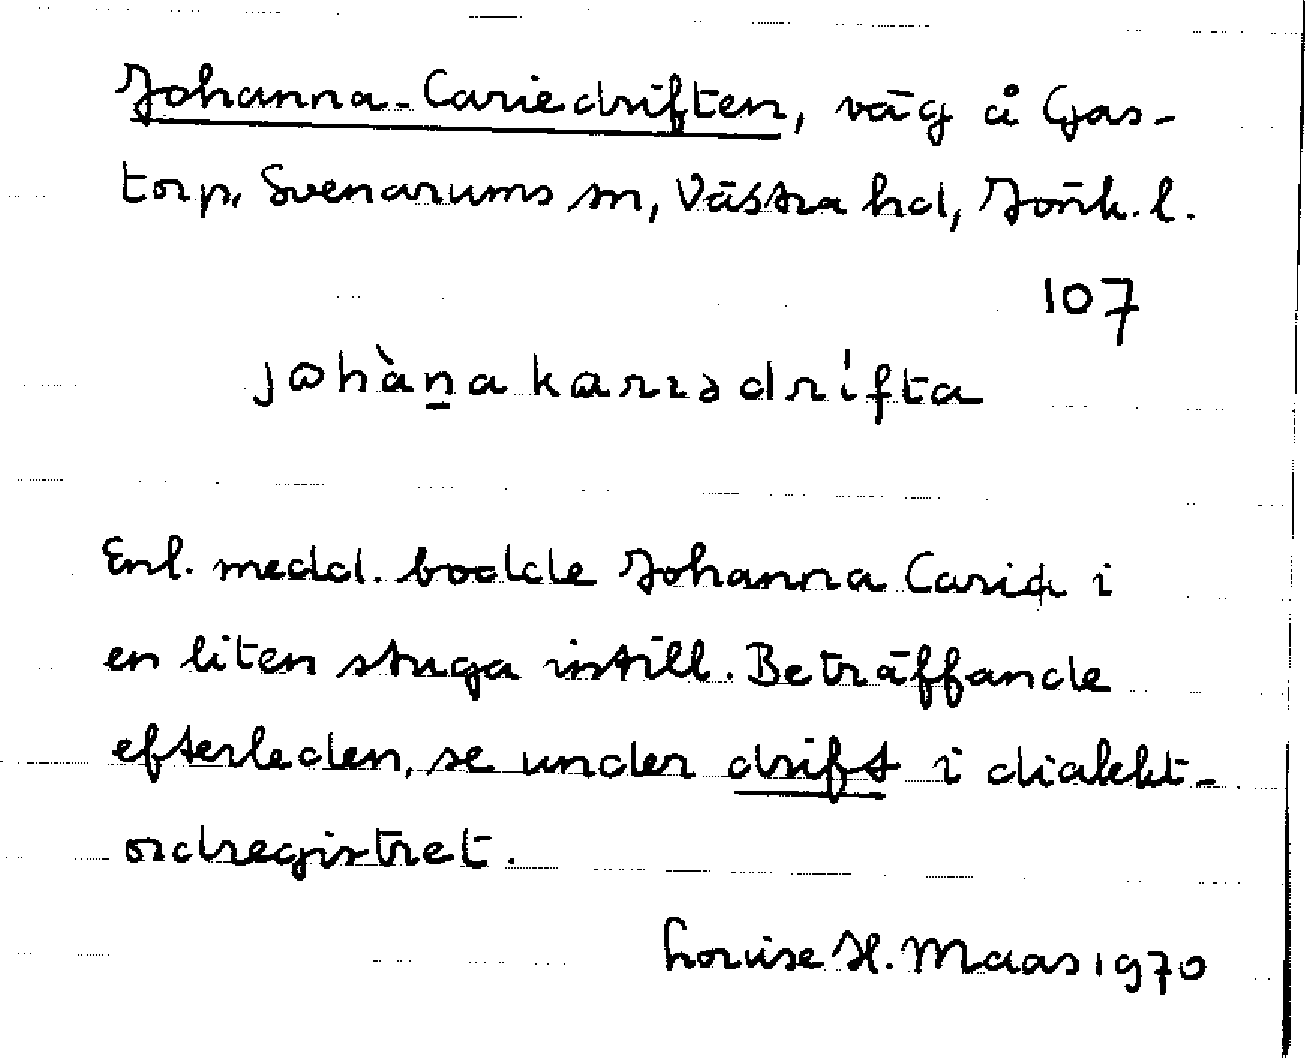 Johanna-Cariedriften, väg å Gas-
torp, Svenarums sn, Västra hd, Jönk. l.
107
jɷhàn̠a karrədrıfta
Enl. medd. bodde Johanna Carie i
en liten stuga intill. Beträffande
efterleden, se under drift i dialekt-
ordregistret.
Louise H. Maas 1970